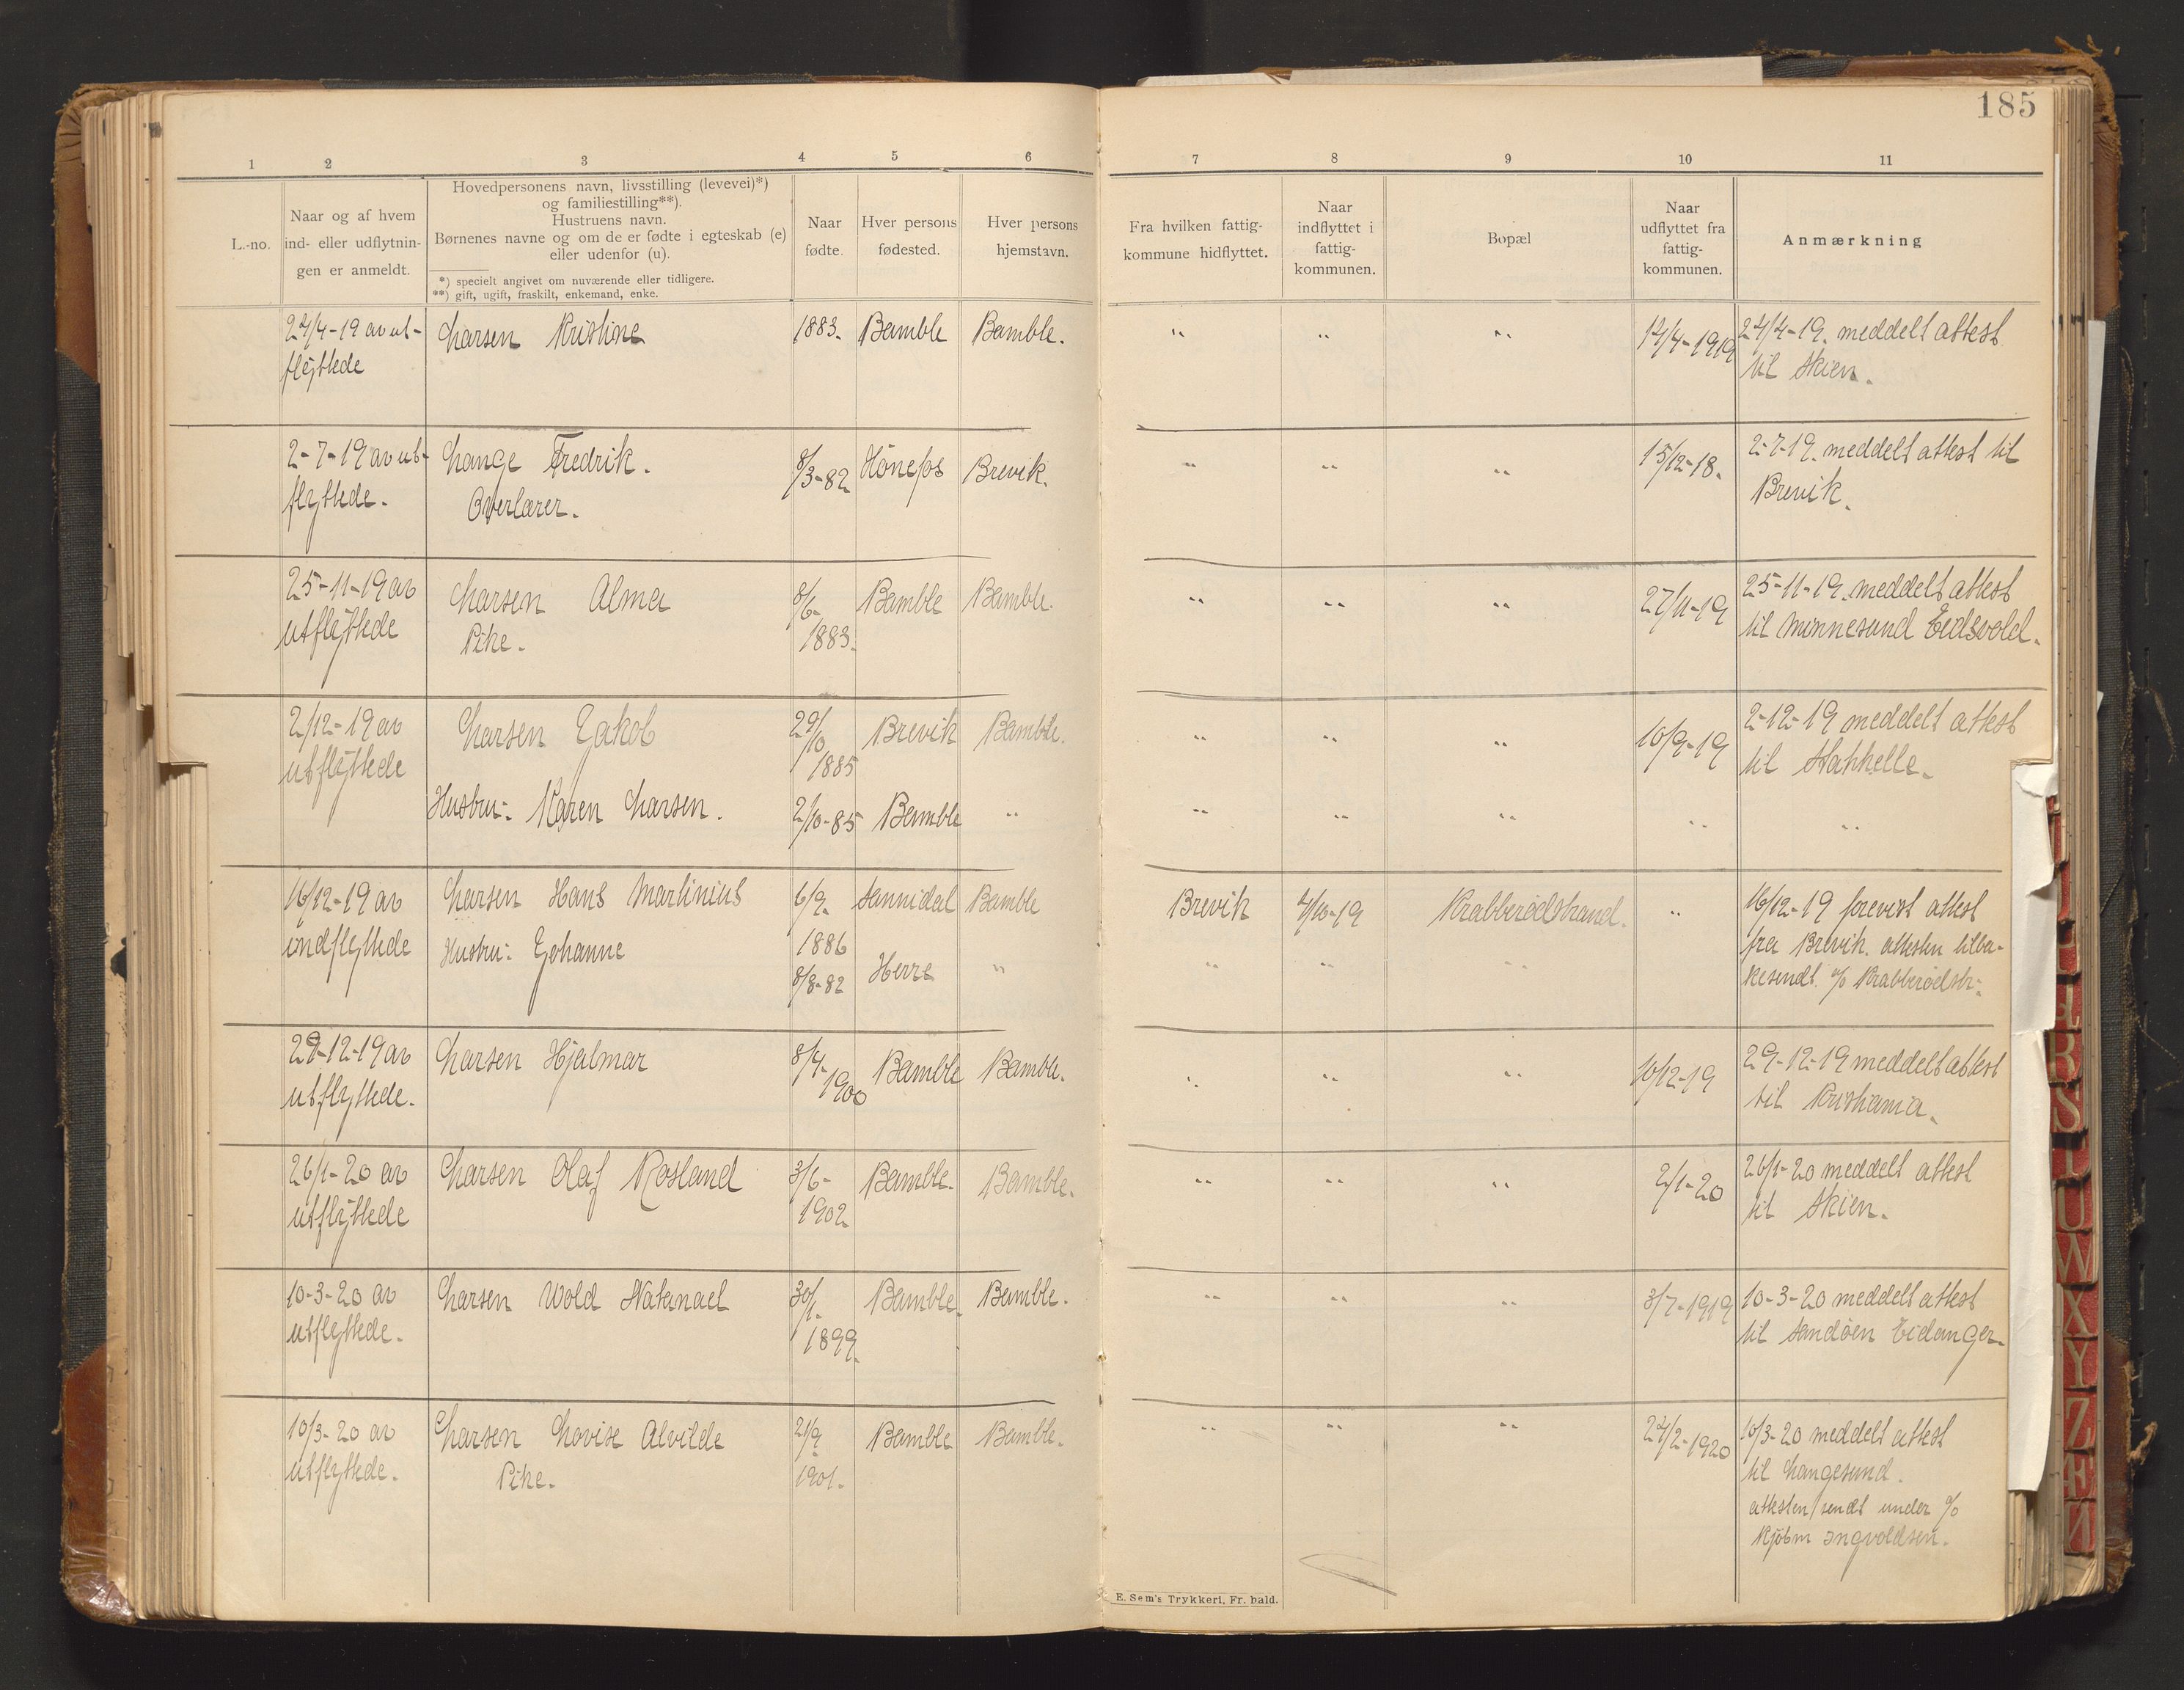 185
1 2 3 4 5 6 7 8 9 10 11
L.-no.
Naar og af hvem
ind- eller udflytnin-
gen er anmeldt.
Hovedpersonens navn, livsstilling (levevei)*)
og familiestilling**).
Hustruens navn.
Børnenes navne og om de er fødte i egteskab (e)
eller udenfor (u).
*) specielt angivet om nuværende eller tidligere.
**) gift, ugift, fraskilt, enkemand, enke.
Naar
fødte.
Hver persons
fødested.
Hver persons
hjemstavn.
Fra hvilken fattig-
kommune hidflyttet.
Naar
indflyttet i
fattig-
kommunen.
Bopæl
Naar
udflyttet fra
fattig-
kommunen.
Anmærkning
24/4-19 av ut- Larsen Kristine 1883. Bamble Bamble. " " " 14/4-1919 24/4-19. meddelt attest
flyttede til Skien.
2-7-19 av ut- Lange Fredrik. 8/3-82 Hønefos Brevik. " " " 15/12-18. 2-7-19. meddelt attest til
flyttede. Overlærer. Brevik.
25-11-19 av Larsen Alma 8/6- Bamble Bamble. " " " 27/11-19 25-11-19. meddelt attest
utflyttede Pike. 1883. til Minnesund Eidsvold.
2/12-19 av Larsen Jakob 29/10 Brevik Bamble. " " " 10/9-19 2-12-19 meddelt attest
utflyttede 1885 til Stathelle.
Hustru: Karen Larsen. 2/10-85 Bamble " " " " " "
16/12-19 av Larsen Hans Martinius 6/9- Sannidal Bamble Brevik 4/10-19 Krabberødstrand. " 16/12-19 forevist attest
indflyttede Hustru: Johanne 1886 fra Brevik. attesten tilba-
8/8-82 Herre " " " " kesendt. a/o Krabberødstr.
29-12-19 av Larsen Hjalmar 8/4- Bamble Bamble. " " " 10/12-19 29-12-19 meddelt attest
utflyttede. 1900 til Kristiania.
26/1-20 av Larsen Olaf Rosland 3/6- Bamble. Bamble. " " " 2/1-20 26/1-20 meddelt attest
utflyttede 1902 til Skien.
10-3-20 av Larsen Wold Natanael 30/1- Bamble. Bamble. " " " 3/7-1919 10-3-20 meddelt attest
utflyttede. 1899. til Sandøen Eidanger.
10/3-20 av Larsen Lovise Alvilde 21/9 Bamble Bamble. " " " 24/2-1920 10/3-20 meddelt attest
utflyttede. Pike. 1901. til Langesund.
attesten sendt under a/o
Kjøbm Ingvoldsen.
E. Sem's Trykkeri, Fr. hald.
R
S
T
U
W
X
Y
Z
Æ